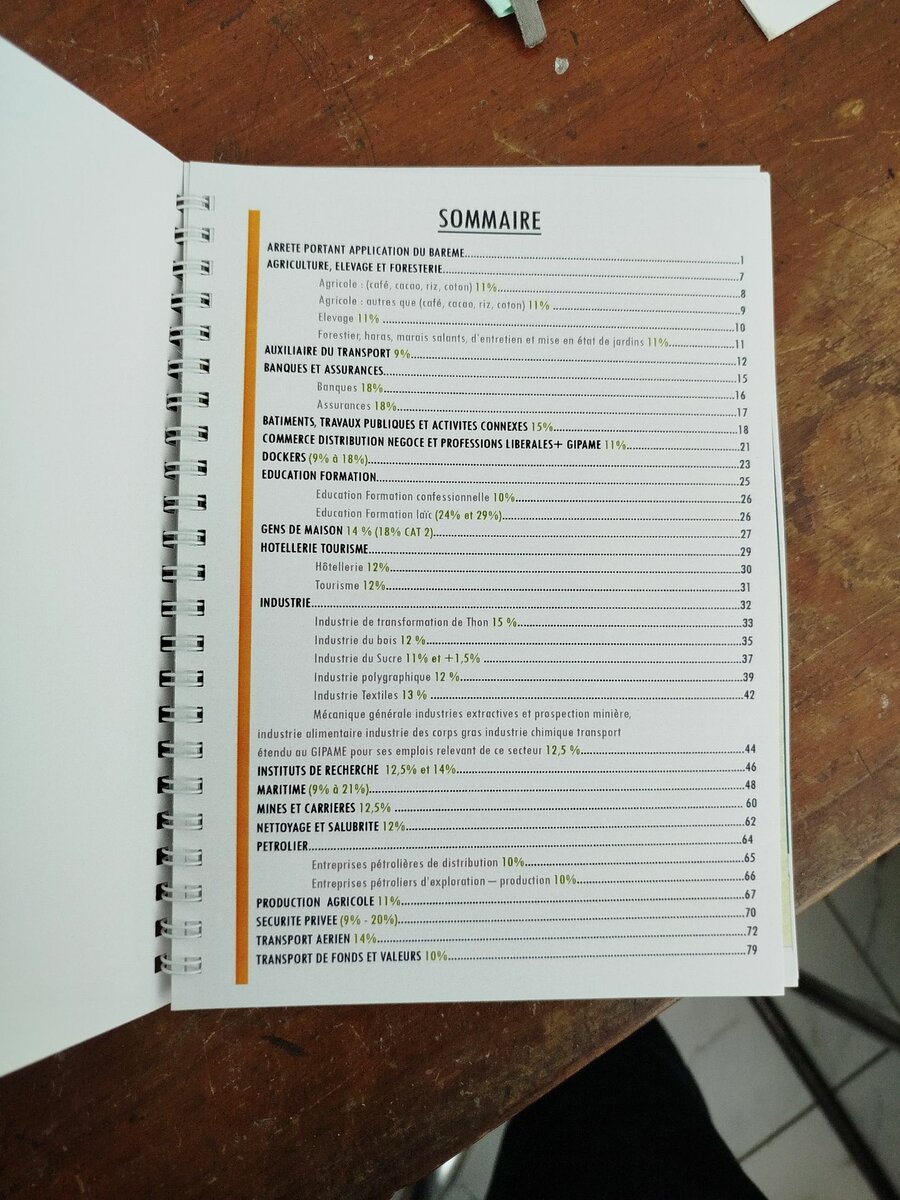 SOMMAIRE
ARRETE PORTANT APPLICATION DU BAREME.....1
AGRICULTURE, ELEVAGE ET FORESTERIE.....7
Agricole : (café, cacao, riz, coton) 11%.....8
Agricole : autres que (café, cacao, riz, coton) 11% .....9
Elevage 11% .....10
Forestier, haras, marais salants, d'entretien et mise en état de jardins 11%.....11
AUXILIAIRE DU TRANSPORT 9%.....12
BANQUES ET ASSURANCES.....15
Banques 18%.....16
Assurances 18%.....17
BATIMENTS, TRAVAUX PUBLIQUES ET ACTIVITES CONNEXES 15%.....18
COMMERCE DISTRIBUTION NEGOCE ET PROFESSIONS LIBERALES+ GIPAME 11%.....21
DOCKERS (9% à 18%).....23
EDUCATION FORMATION.....25
Education Formation confessionnelle 10%.....26
Education Formation laïc (24% et 29%).....26
GENS DE MAISON 14 % (18% CAT 2).....27
HOTELLERIE TOURISME.....29
Hôtellerie 12%.....30
Tourisme 12%.....31
INDUSTRIE.....32
Industrie de transformation de Thon 15 %.....33
Industrie du bois 12 %.....35
Industrie du Sucre 11% et +1,5% .....37
Industrie polygraphique 12 %.....39
Industrie Textiles 13 % .....42
Mécanique générale industries extractives et prospection minière,
industrie alimentaire industrie des corps gras industrie chimique transport
étendu au GIPAME pour ses emplois relevant de ce secteur 12,5 %.....44
INSTITUTS DE RECHERCHE 12,5% et 14%.....46
MARITIME (9% à 21%).....48
MINES ET CARRIERES 12,5% .....60
NETTOYAGE ET SALUBRITE 12%.....62
PETROLIER.....64
Entreprises pétrolières de distribution 10%.....65
Entreprises pétroliers d'exploration – production 10%.....66
PRODUCTION AGRICOLE 11%.....67
SECURITE PRIVEE (9% - 20%).....70
TRANSPORT AERIEN 14%.....72
TRANSPORT DE FONDS ET VALEURS 10%.....79